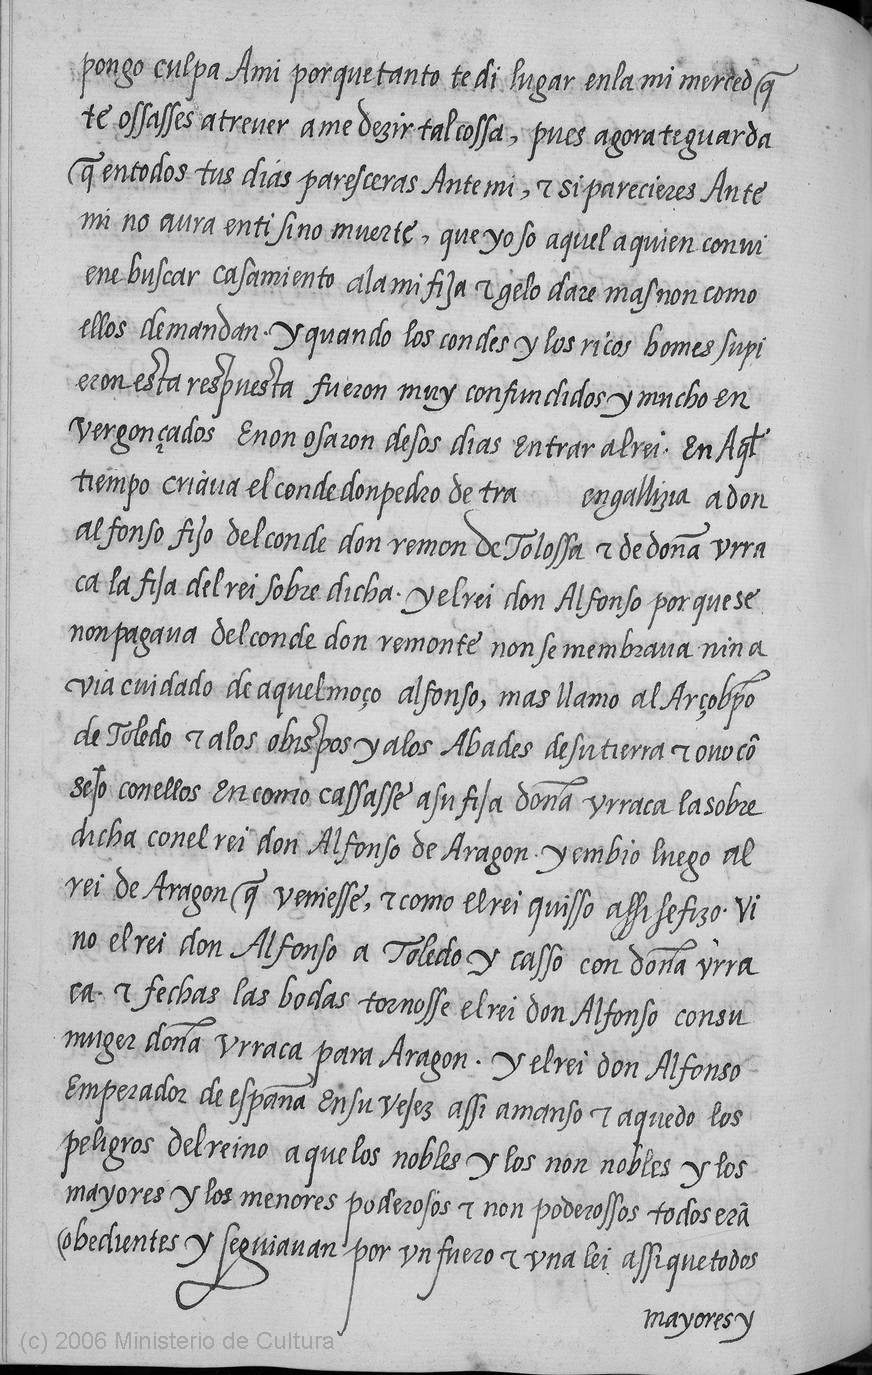 pongo culpa Ami porque tanto te di lugar en la mi merced q̃
te ossasses atreuer a me dezir tal cossa, pues agora te guarda
q̃ en todos tus dias paresceras Ante mi, τ si parecieres Ante
mi no aura en ti sino muerte, que yo so aquel a quien convi
ene buscar casamiento ala mi fija τ gelo dare mas non como
ellos demandan. Y quando los condes y los ricos homes supi
eron esta respuesta fueron muy confundidos y mucho en
vergonçados E non osaron desos dias entrar al rei. En Aql̃
tiempo criaua el conde don pedro de tra engallizia a don
alfonso fijo del conde don remon de Tolossa τ de doña vrra
ca la fija del rei sobre dicha. y el rei don Alfonso porque se
non pagaua del conde don remonte non se membraua nin a
via cuidado de aquel moço alfonso, mas llamo al Arçobp̃o
de Toledo τ alos obispos y alos Abades de su tierra τ ouo cõ
sejo con ellos En como cassasse a su fija doña vrraca la sobre
dicha con el rei don Alfonso de Aragon. y embio luego al
rei de Aragon q̃ veniesse, τ como el rei quisso assi se fizo. Vi
no el rei don Alfonso a Toledo y casso con doña vrra
ca. τ fechas las bodas tornosse el rei don Alfonso con su
muger doña Vrraca para Aragon. y el rei don Alfonso
Emperador de españa En su vejez assi amanso τ aquedo los
peligros del reino a que los nobles y los non nobles y los
mayores y los menores poderosos τ non poderossos todos erã
obedientes y seguiauan por vn fuero τ vna lei assi que todos
mayores y
(c) 2006 Ministerio de Cultura